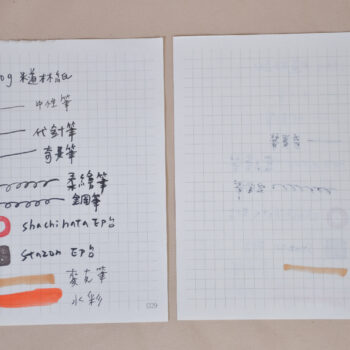 0g 米道林紙
中性筆
代針筆
奇異筆
柔繪筆
鋼筆
shachihata 印台
stazon 印台
麥克筆
水彩
029